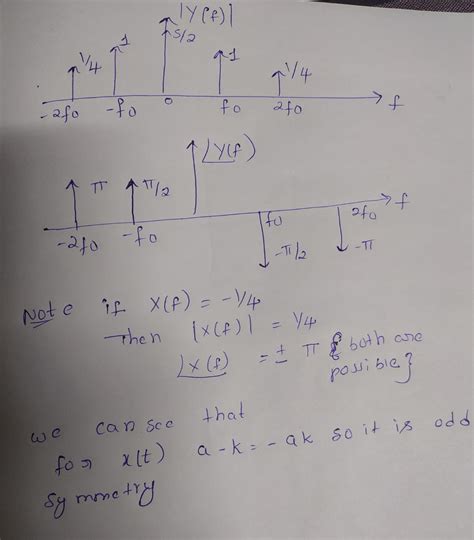 |Y(f)|
5/2
1/4 1 1 1/4
-2f0 -f0 0 f0 2f0 f
∠Y(f)
π π/2
-2f0 -f0 f0 2f0 f
-π/2 -π
Note if X(f) = -1/4
Then |X(f)| = 1/4
∠X(f) = ± π { both are
possible}
we can see that
for x(t) a-k = -ak so it is odd
symmetry